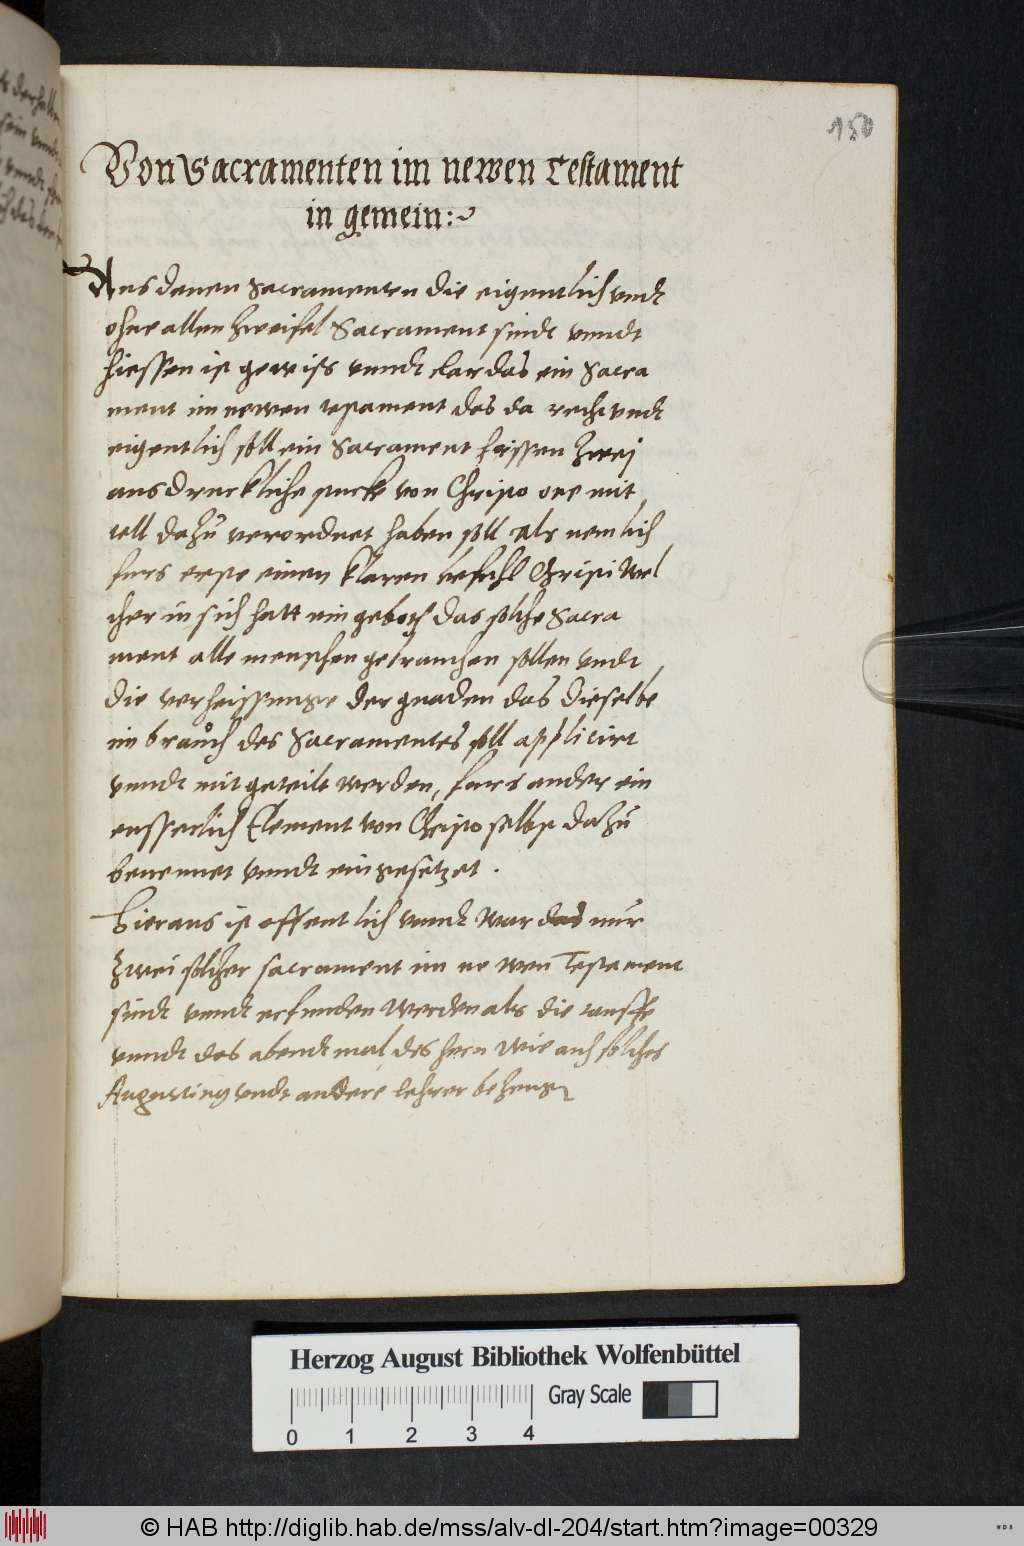 150
Von Sacramenten im newen Testament
in gemein:~
Aus denen Sacramenten die eigentlich undt
ohne allen Zweifel Sacrament sindt vnndt
hiessen ist gewiss vnndt clar das ein Sacra
ment im newen testament das da recht vndt
eigentlich soll ein Sacrament heissen Zwei
ausdruckliche stucke von Christo one mit
tell dazu verordnet haben soll Als nemlich
furs erste einen klaren befehl Christi Wel
cher in sich hatt ein geboth das solche Sacra
ment alle menschen gebrauchen sollen vndt
die verheissunge der gnaden das dieselbe
im brauch des Sacramentes soll applicirt
vnndt mit geteilt werden, furs ander ein
eusserlich Element von Christo selbst dazu
benennet vnndt eingesetzet .
Hieraus ist offentlich vnndt War das nur
Zwei solcher sacrament im ne wen Testament
sindt vnndt erfunden Werden als die tauffe
vnndt das abendtmal des hern Wie auch solches
Augustinus vndt andere lehrer bezeugen
Herzog August Bibliothek Wolfenbüttel
Gray Scale
0 1 2 3 4
© HAB http://diglib.hab.de/mss/alv-dl-204/start.htm?image=00329